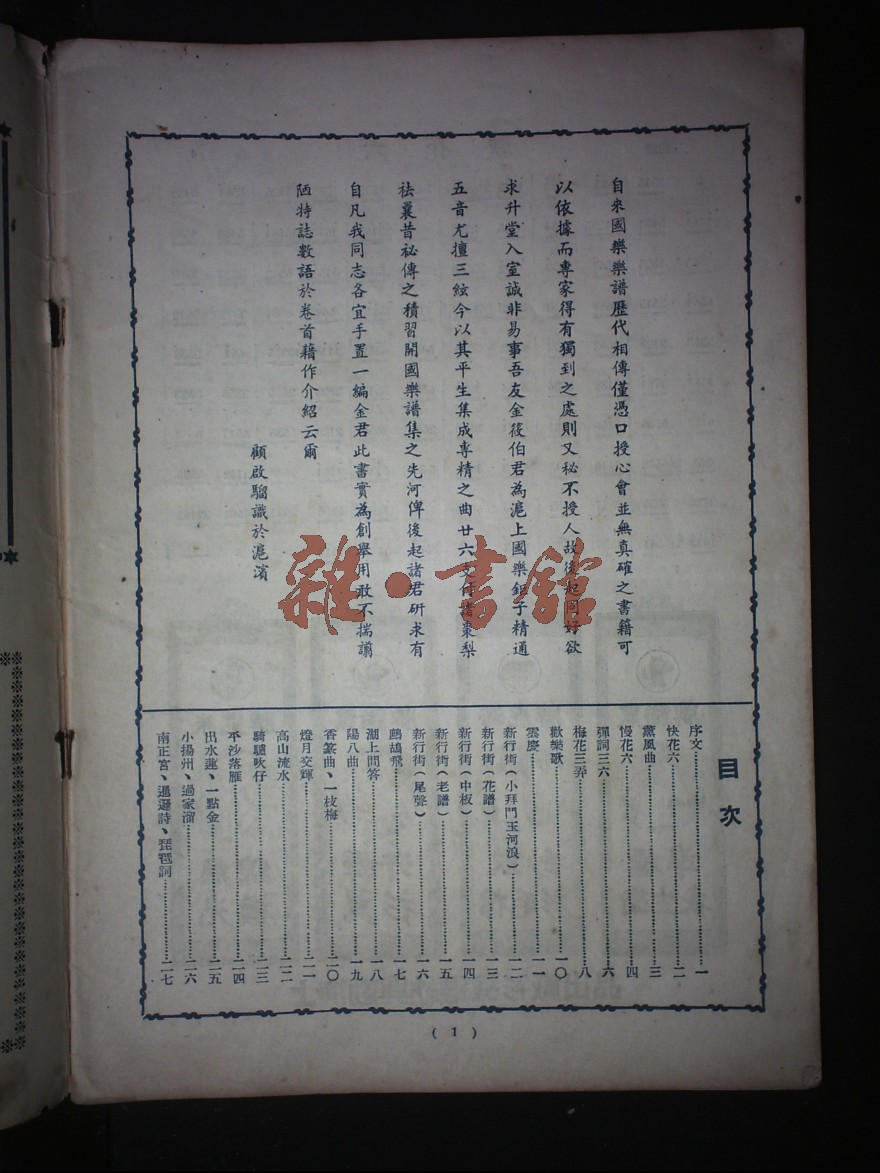 自來國樂樂譜歷代相傳僅憑口授心會並無真確之書籍可
以依據而專家得有獨到之處則又秘不授人故後起同好欲
求升堂入室誠非易事吾友金筱伯君為滬上國樂鉅子精通
五音尤擅三絃今以其平生集成專精之曲廿六支付諸棗梨
祛曩昔祕傳之積習開國樂譜集之先河俾後起諸君研求有
自凡我同志各宜手置一編金君此書實為創舉用敢不揣譾
陋特誌數語於卷首藉作介紹云爾
顧啟騮識於滬濱
雜·書館
目次
序文…………一
快花六…………二
薰風曲…………三
慢花六…………四
彈詞三六…………六
梅花三弄…………八
歡樂歌…………一〇
雲慶…………一一
新行街(小拜門玉河浪)…………一二
新行街(花譜)…………一三
新行街(中板)…………一四
新行街(老譜)…………一五
新行街(尾聲)…………一六
鷓鴣飛…………一七
湖上問答…………一八
陽八曲…………一九
香篆曲、一枝梅…………二〇
燈月交輝…………二一
高山流水…………二二
騎驢吙仔…………二三
平沙落雁…………二四
出水蓮、一點金…………二五
小揚州、過家溜…………二六
南正宮、邋遢詩、琵琶詞…………二七
(1)